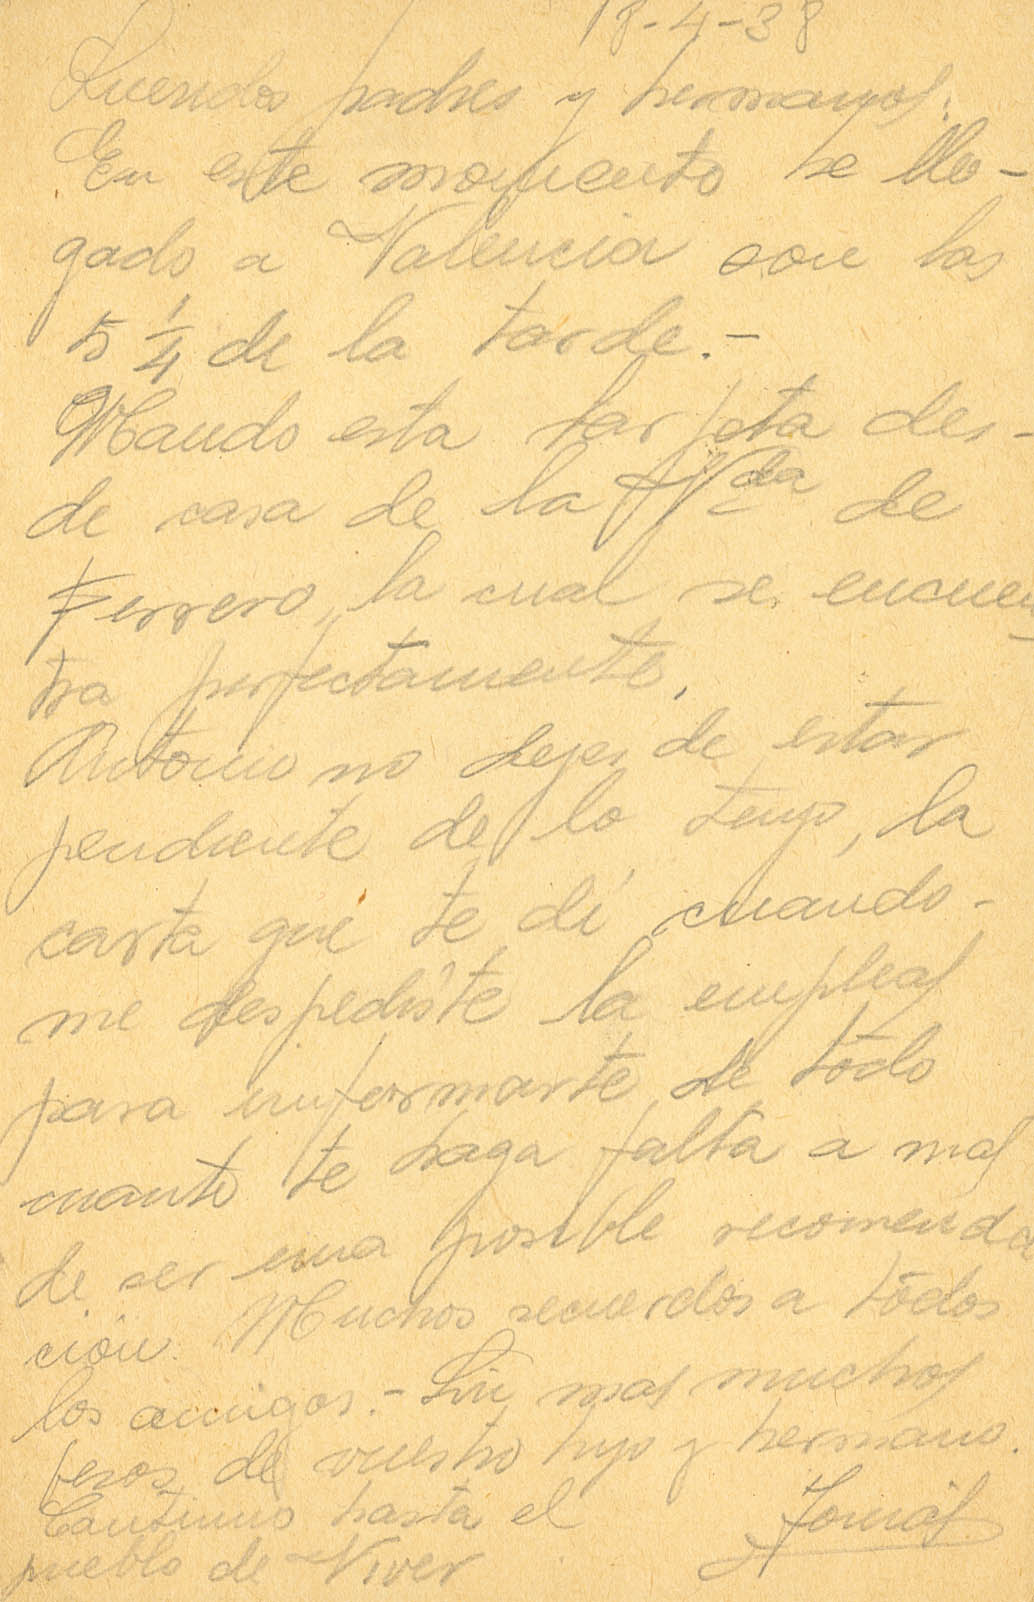 18-4-38
Queridos padres y hermanos:
En este momento he lle-
gado a Valencia son las
5 1/4 de la tarde.-
Mando esta tarjeta des-
de casa de la Vda de
Ferrero, la cual se encuen
tra perfectamente.
Antonio no dejes de estar
pendiente de lo tuyo, la
carta que te dí cuando-
me despediste la empleas
para informarte de todo
cuanto te haga falta a mas
de ser una posible recomenda
ción. Muchos recuerdos a todos
los amigos.- Sin mas muchos
besos de vuestro hijo y hermano.
Continuo hasta el
pueblo de Viver
Tomás